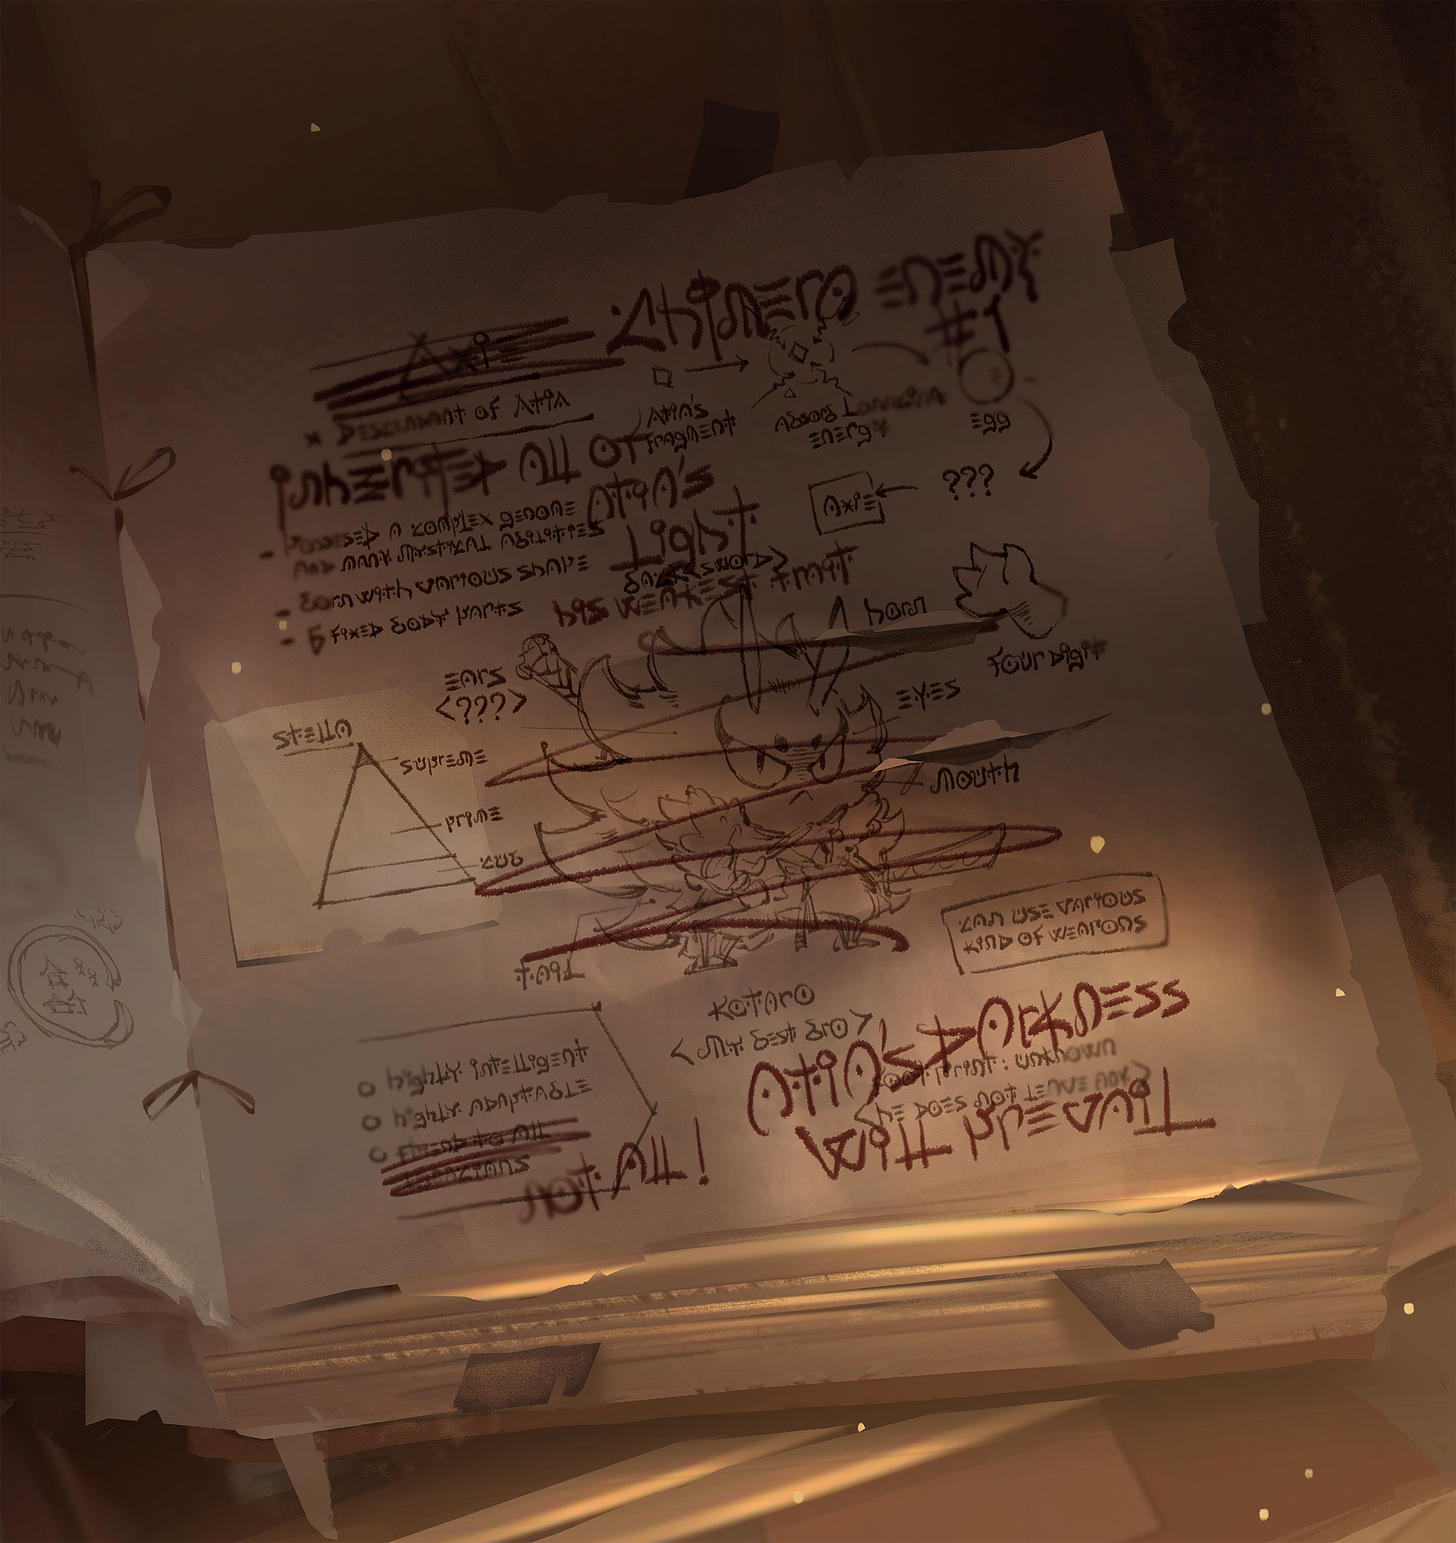 Chimera Enemy
#1
Axi
x Descendant of Atia
Inherited all of
Atia's
Light
Atia's
Fragment
Absorb Lunacian
energy
Egg
???
Axie
- Possessed a complex genome
and many mystical abilities
- Born with various shape
- 6 fixed body parts
Back <sword>
his weakest trait
horn
four digit
Ears
<???>
Eyes
Mouth
Stella
Supreme
Prime
Cub
Tail
Can use various
kind of weapons
Kotaro
<My best bro>
Atia's Darkness
Will Prevail
Footprint : unknown
<He does not leave any>
o highly intelligent
o highly adaptable
o Friend to all
Lunacians
Not All!